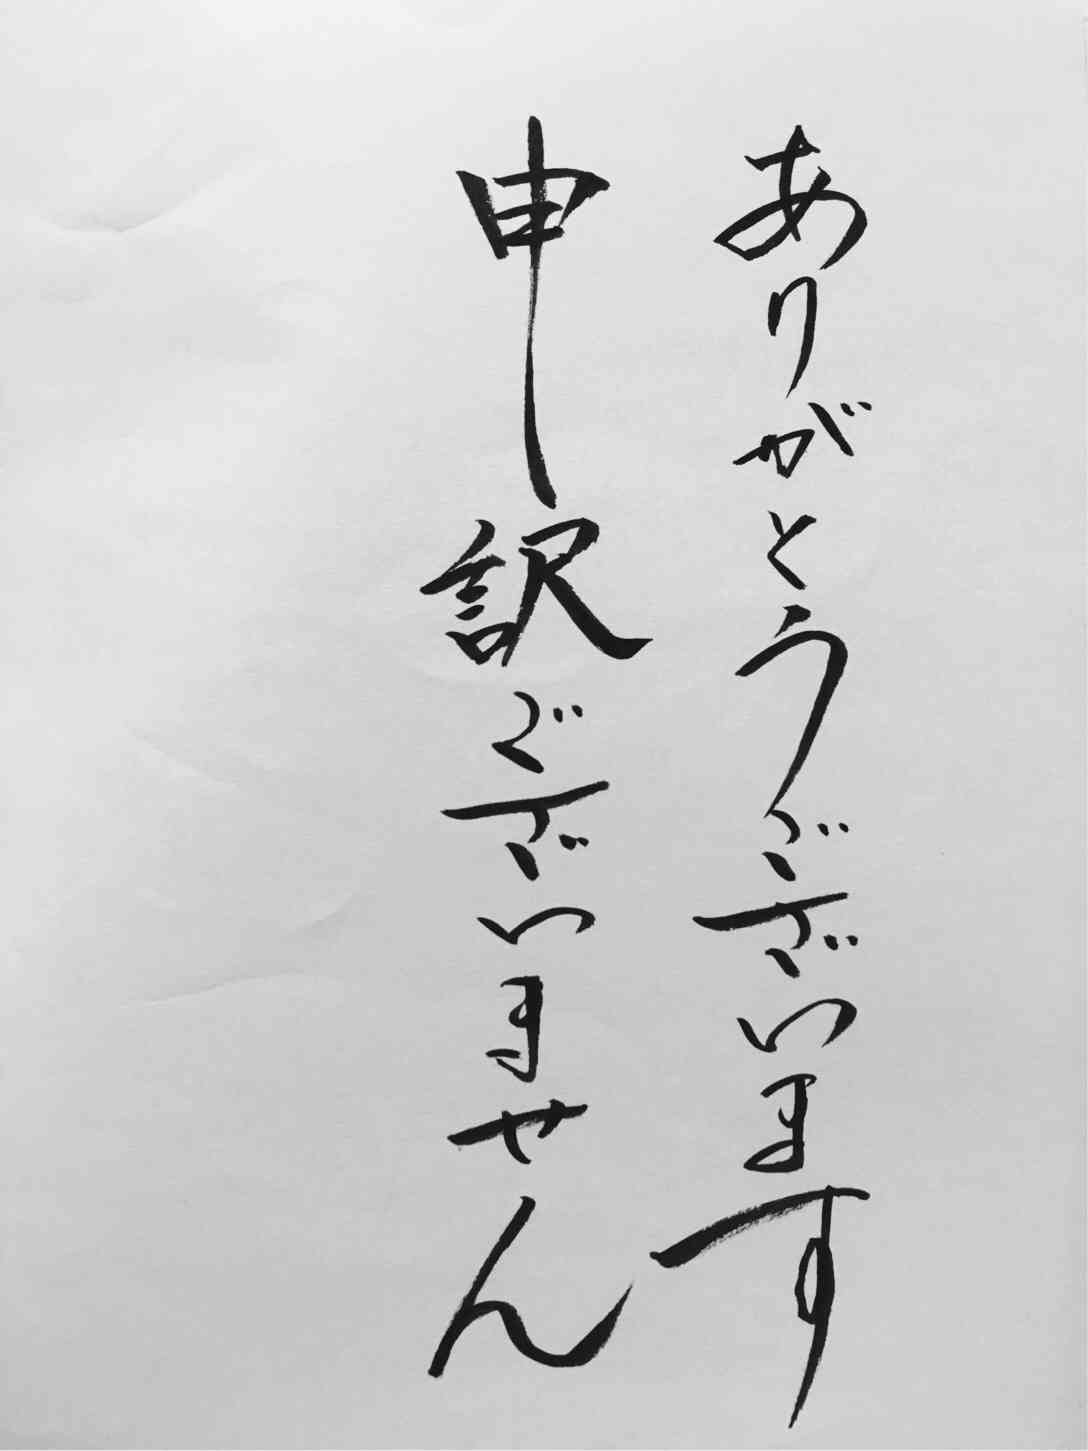 ありがとうございます
申訳ございません